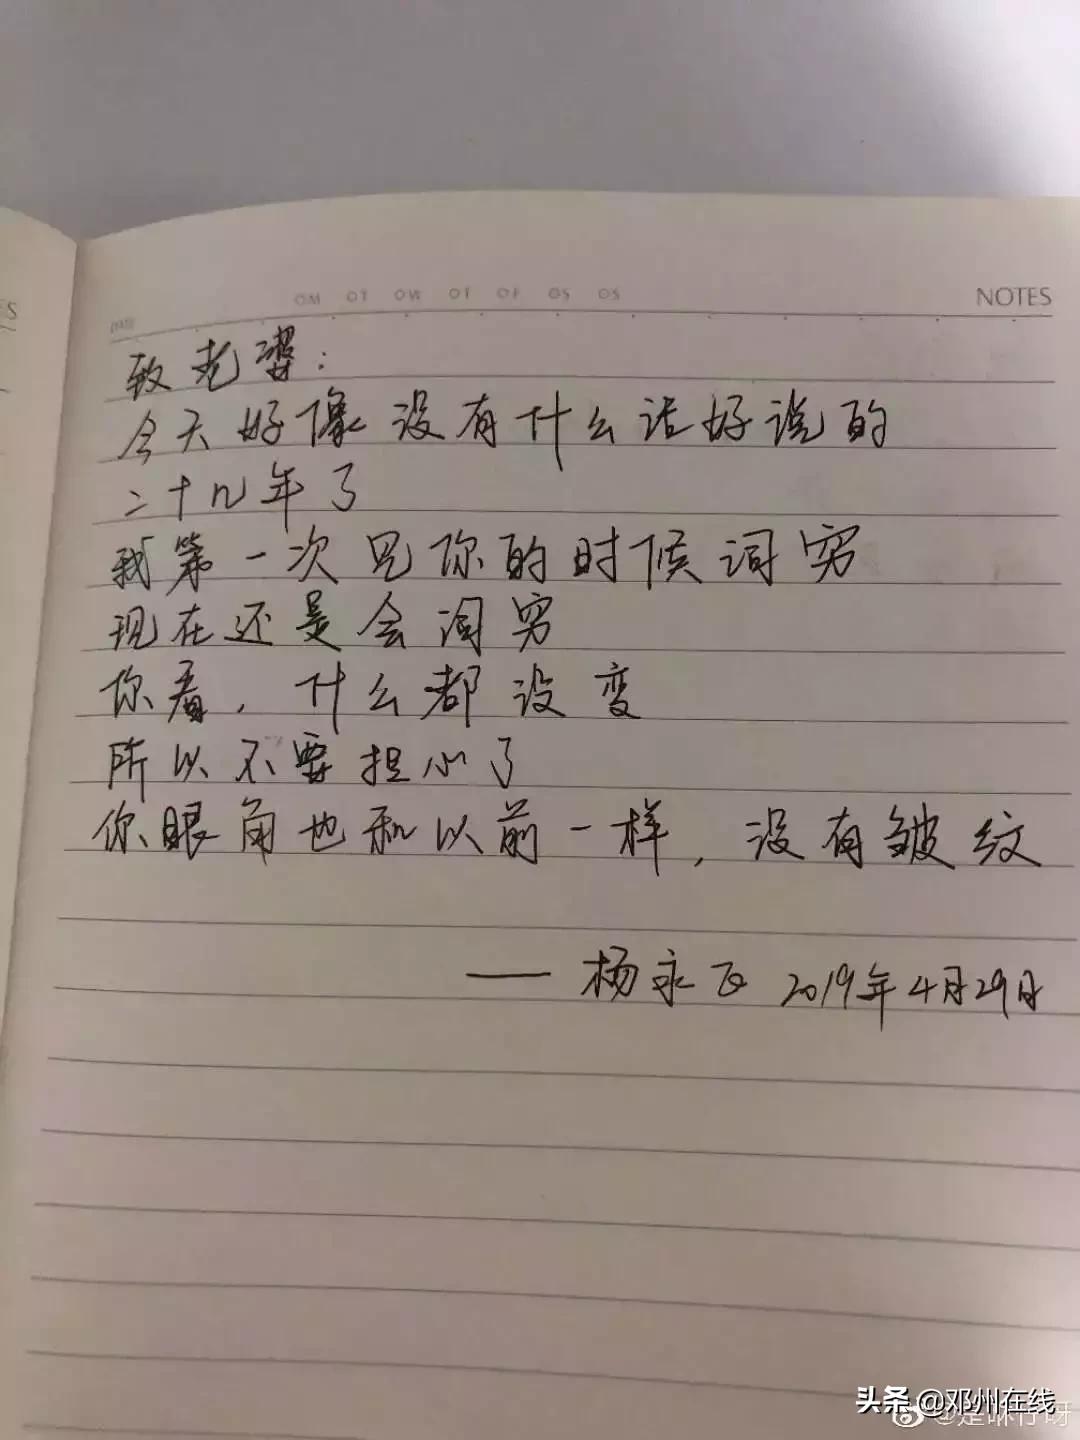 ES
DATE OM OT OW OT OF OS OS NOTES
致老婆：
今天好像没有什么话好说的
二十几年了
我第一次见你的时候词穷
现在还是会词穷
你看，什么都没变
所以不要担心了
你眼角也和以前一样，没有皱纹
——杨永正 2019年4月29日
头条@邓州在线